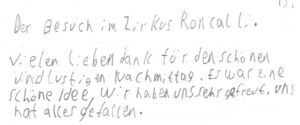 13.
Der Besuch im Zirkus Roncalli.
Vielen lieben dank für den schönen
und lustigen Nachmittag. Es war eine
schöne Idee, wir haben uns sehr gefreut. uns
hat alles gefallen.